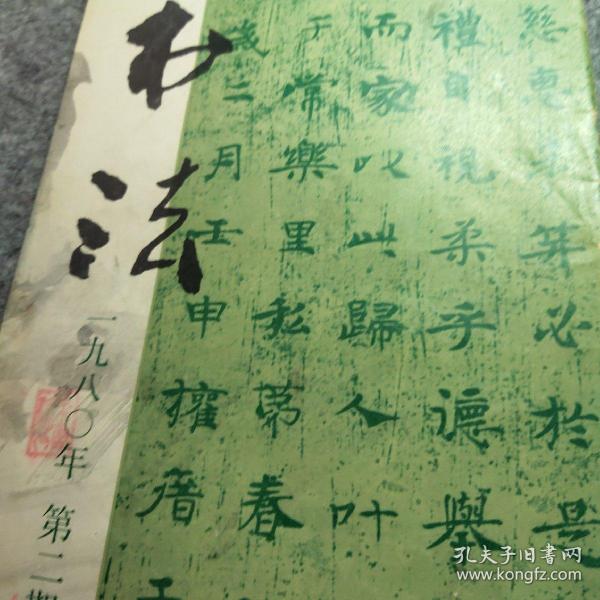 书法
一九八〇年 第二期
慈惠
算必於是
禮自視柔乎德舉
而家以此歸人叶
于常樂里私第春
歲二月壬申權窆
孔夫子旧书网
www.kongfz.com